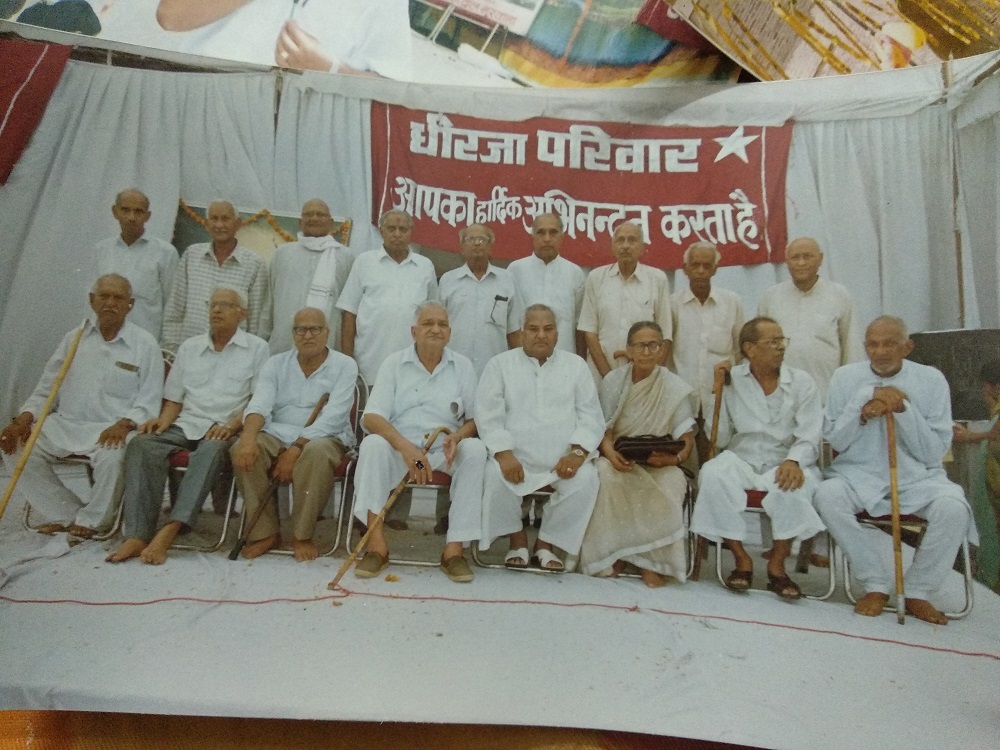 धीरजा परिवार
आपका हार्दिक अभिनन्दन करता है